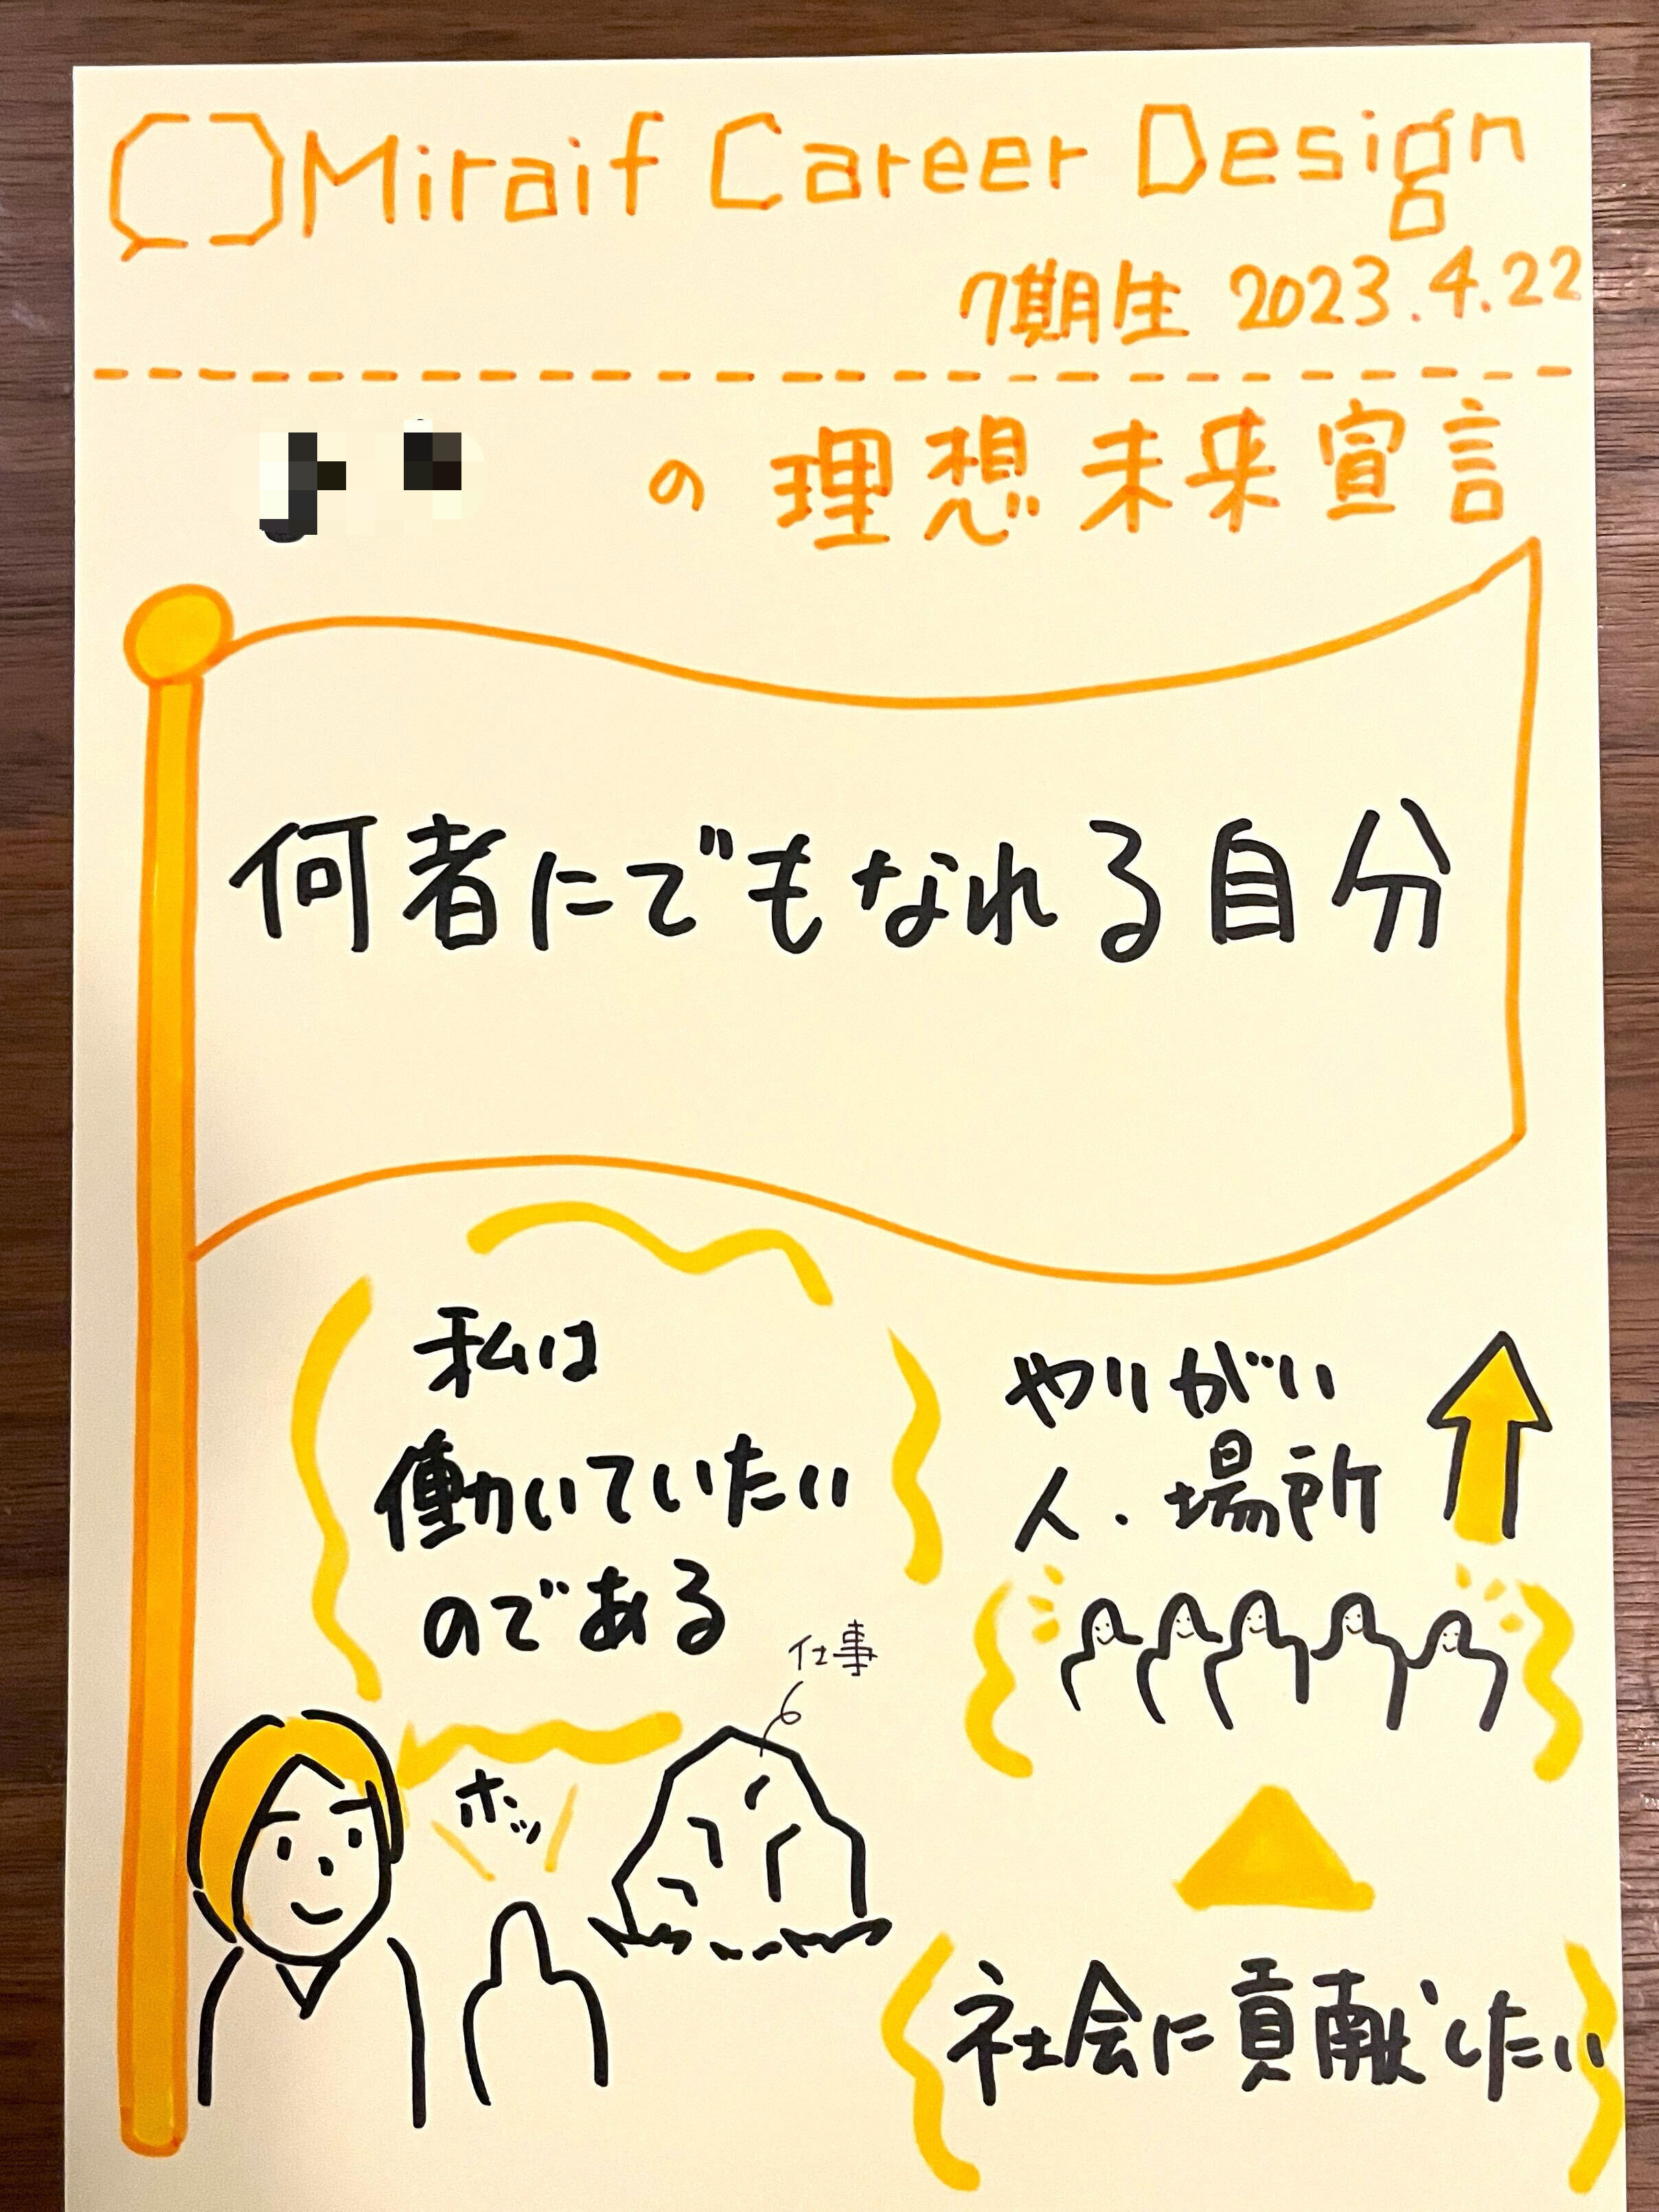 Miraif Career Design
7期生 2023.4.22
の理想未来宣言
何者にでもなれる自分
私は
働いていたい
のである
やりがい
人・場所
仕事
ホッ
社会に貢献したい